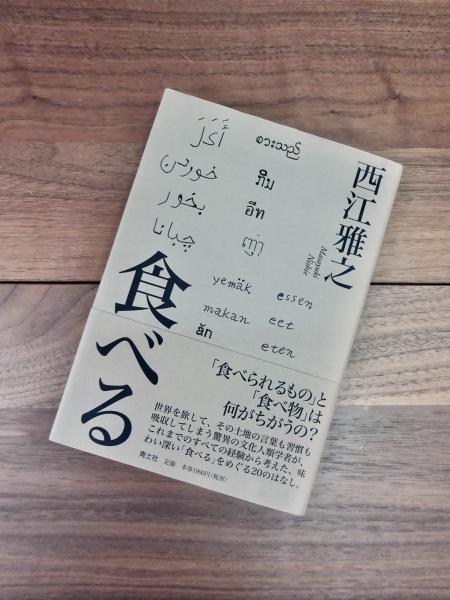 西江雅之
Masayuki Nishie
أَكَلَ
စားသည်
خوردن
ກິນ
بخور
อีท
چبانا
yemäk
essen
makan
eet
ăn
eten
食べる
「食べられるもの」と
「食べ物」は
何がちがうの?
世界を旅して、その土地の言葉も習慣も
吸収してしまう驚異の文化人類学者が、
これまでのすべての経験から考えた、味
わい深い「食べる」をめぐる20のはなし。
青土社 定価 本体1900円(税別)